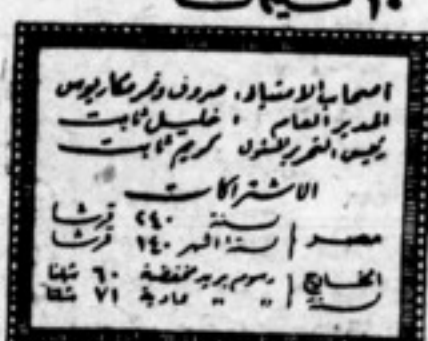 ١٠ مليمات
اصحاب الامتياز: صروف ونمر مكاريوس
المدير العام : خليل ثابت
رئيس التحرير المسئول كريم ثابت
الاشتراكات
مصر | سنة ٢٤٠ قرشا
ستة اشهر ١٤٠ قرشا
الخارج | رسوم بريد مخفضة ٦٠ شلنا
سنة | " " عادية ٧١ شلنا